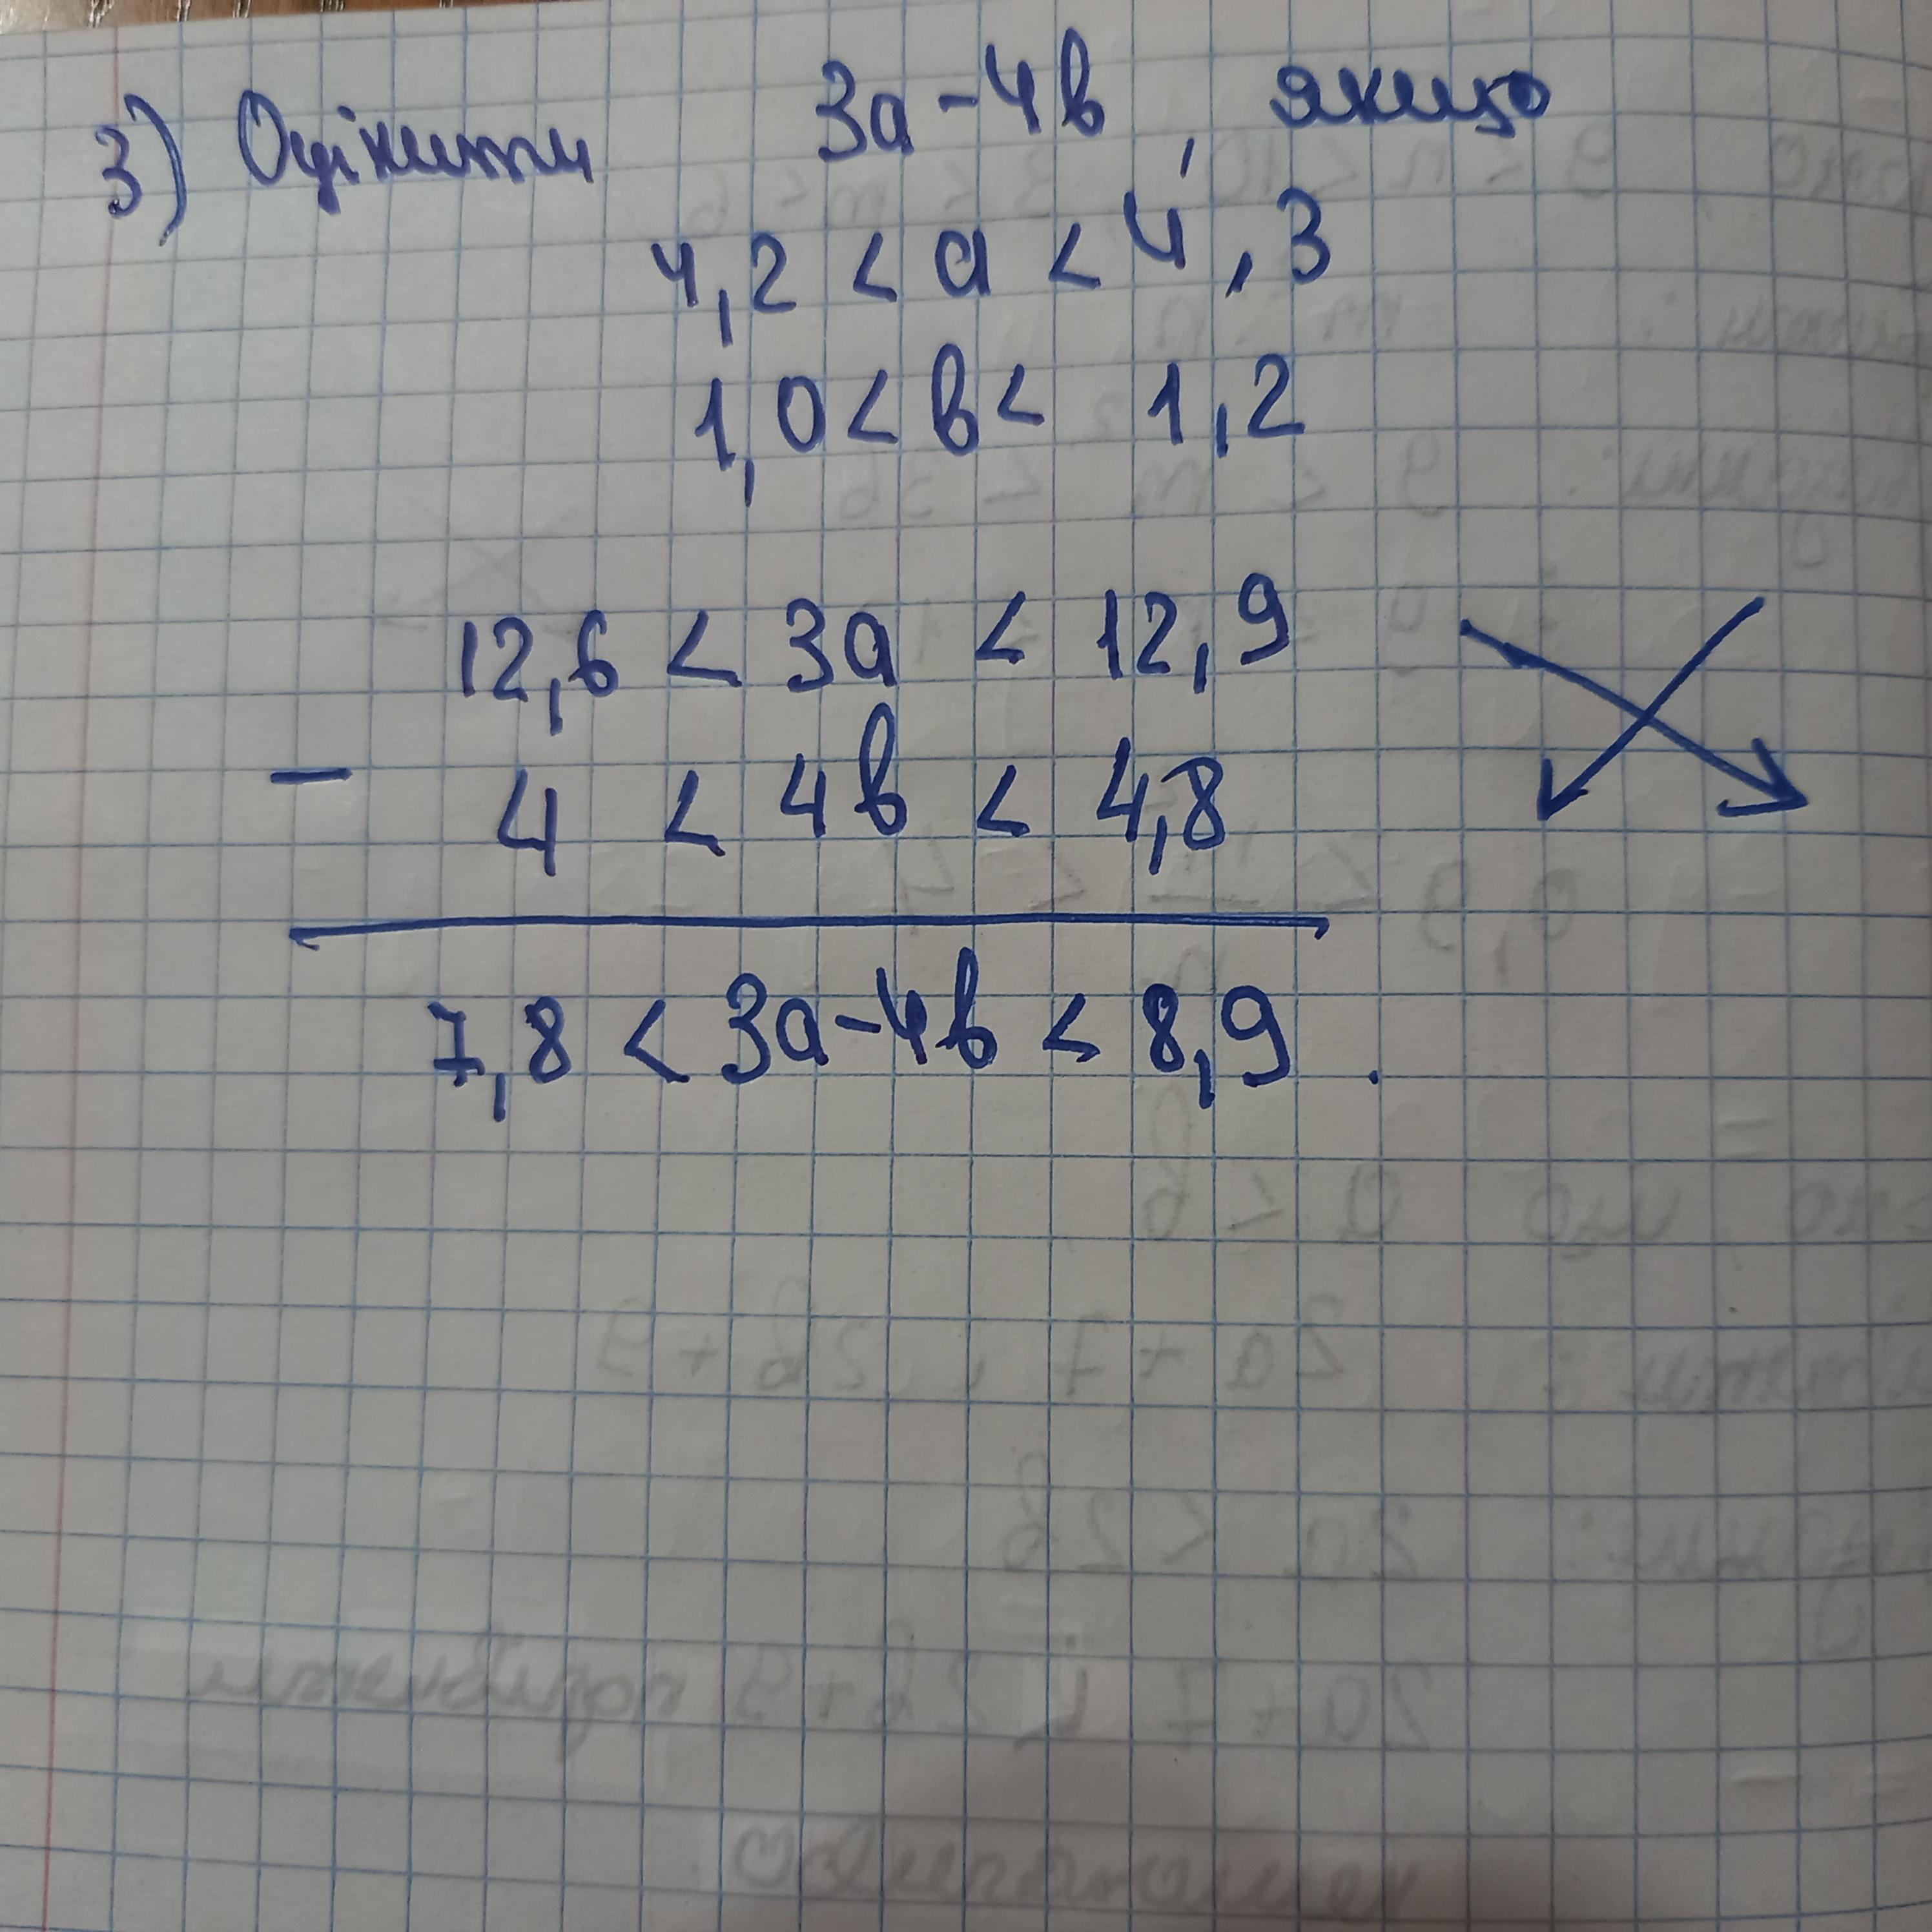 3) Оцінити 3a-4b, якщо
4,2 < a < 4,3
1,0 < b < 1,2
12,6 < 3a < 12,9
- 4 < 4b < 4,8
7,8 < 3a-4b < 8,9.